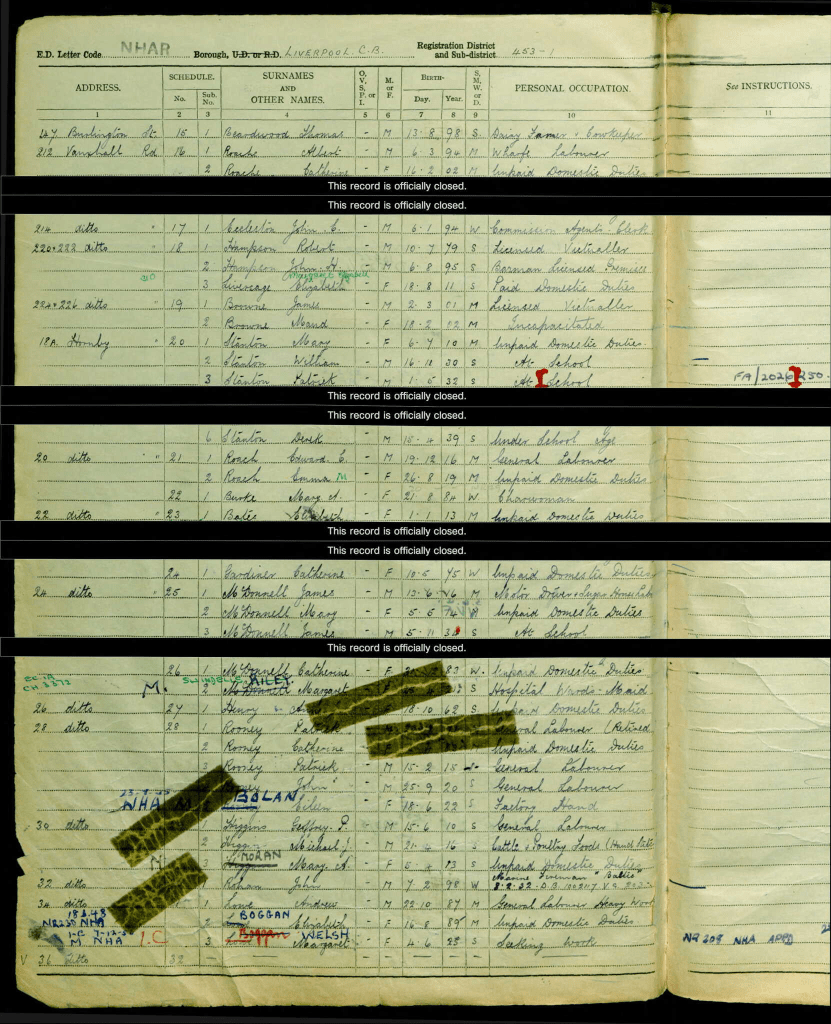 E.D. Letter Code NHAR Borough, U.D. or R.D. LIVERPOOL C.B. Registration District and Sub-district 453-1
ADDRESS. SCHEDULE. SURNAMES AND OTHER NAMES. O. V. S. P. or I. M. or F. BIRTH— S. M. W. or D. PERSONAL OCCUPATION. See INSTRUCTIONS.
No. Sub. No. Day. Year.
1 2 3 4 5 6 7 8 9 10 11
247 Burlington St. 15 1 Beardwood Thomas - M 13-8 98 S Dairy Farmer & Cowkeeper
212 Vauxhall Rd 16 1 Roache Albert - M 6-3 94 M Wharfe Labourer
2 Roache Catherine - F 16-2 02 M Unpaid Domestic Duties
This record is officially closed.
This record is officially closed.
214 ditto " 17 1 Eccleston John C. - M 6-1 94 W Commission Agents Clerk
220+222 ditto " 18 1 Hampson Robert - M 10-7 79 S Licensed Victualler
2 Hampson John H. - M 6-8 95 S Barman Licensed Premises
3 Liversage Elizabeth - F 18-8 11 S Paid Domestic Duties
224+226 ditto " 19 1 Browne James - M 2-3 01 M Licensed Victualler
2 Browne Maud - F 18-2 02 M Incapacitated
18A Hornby " 20 1 Stanton Mary - F 6-7 10 M Unpaid Domestic Duties
2 Stanton William - M 16-11 30 S At School
3 Stanton Patrick - M 1-5 32 S At School
This record is officially closed.
This record is officially closed.
6 Stanton Derek - M 15-4 39 S Under School Age
20 ditto " 21 1 Roach Edward C. - M 19-12 16 M General Labourer
2 Roach Emma M - F 26-8 19 M Unpaid Domestic Duties
22 1 Burke Mary A. - F 21-8 84 W Charwoman
22 ditto " 23 1 Bates Elizabeth - F 1-1 13 M Unpaid Domestic Duties
This record is officially closed.
This record is officially closed.
24 1 Gardiner Catherine - F 10-5 75 W Unpaid Domestic Duties
24 ditto " 25 1 McDonnell James - M 13-6 M Motor Driver
2 McDonnell Mary - F 5-5 Unpaid Domestic Duties
3 McDonnell James - M 5-11 S At School
This record is officially closed.
26 1 McDonnell Catherine - F 87 W. Unpaid Domestic Duties
M. RILEY.
2 McDonnell Margaret S Hospital Wards-Maid
26 ditto 27 1 Henry 18-10 62 S Unpaid Domestic Duties
28 ditto 28 1 Rooney Patrick General Labourer (Retired
2 Rooney Catherine Unpaid Domestic Duties
3 Rooney Patrick - M 15-2 15 General Labourer
John - M 25-9 20 S General Labourer
NHA M BOLAN
Eileen - F 18-6 22 S Factory Hand
30 ditto 1 Higgins Geoffrey P. - M 15-6 10 S General Labourer
2 Michael J. - M 21-4 16 S Cattle & Poultry Foods
M MORAN
3 Mary A. - F 5-4 S Unpaid Domestic Duties
32 ditto 1 John - M 7-2 98 W Marine Fireman "Baltic"
34 ditto 1 Lowe Andrew - M 22-10 87 M General Labourer Heavy Work
18.2.48 BOGGAN
NR230 NHA 2 Elizabeth - F 16-8 89 M Unpaid Domestic Duties
M NHA I.C Boggan WELSH
3 Margaret - F 4-6 23 S Seeking Work NR 208 NHA
V 36 ditto 32 —